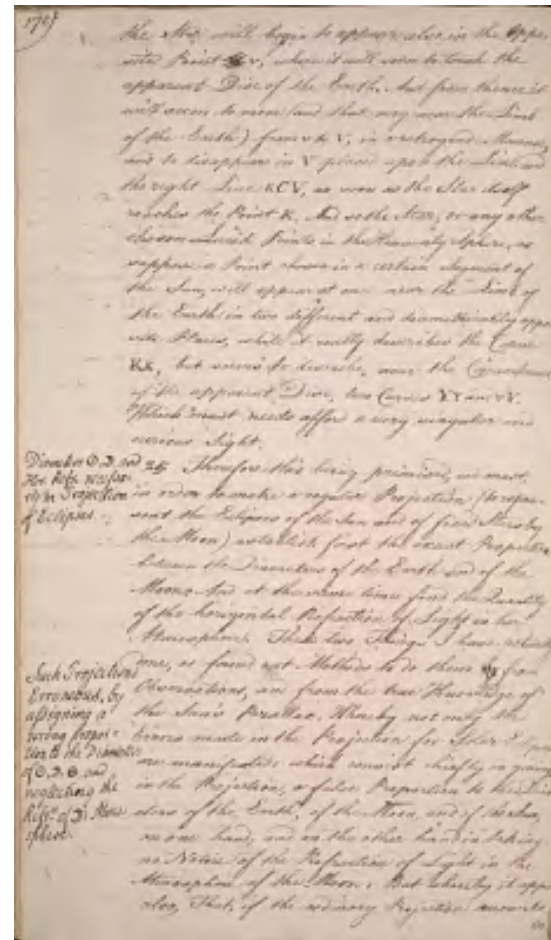 the Star will begin to appear also in the Oppo
site Point v, where it will seem to touch the
apparent Disc of the Earth. And from thence it
will seem to move (and that very near the Limb
of the Earth) from v to V, in a retrograde Manner,
and to disappear in V placed upon the Limb and
the right Line KCV, as soon as the Star itself
reaches the Point K. And so the Star, or any other
Points in the Heavenly Sphere, as
suppose a Point chosen in a certain Segment of
the Sun, will appear at once near the Limb of
the Earth in two different and diametrically oppo
site Places, while it really describes the Curve
Kk, but seems to describe, near the Circumference
of the apparent Disc, two Curves and vV.
Which must needs afford a very singular and
curious Sight.
Diameter and
Refr. necessa-
ry in Projection
of Eclipses.
25 Therefore this being premised, we must,
in order to make a regular Projection (to repre-
sent the Eclipses of the Sun and of fixed Stars by
the Moon) establish first the exact Proportion
between the Diameters of the Earth and of the
Moon: And at the same time find the Quantity
of the horizontal Refraction of Light in her
Atmosphere. These two Things I have
done, as found out Methods to do them from
Observations, and from the true Knowledge of
the Sun's Parallax. Whereby not only the
Errors made in the Projection for Solar
are manifested; which consist chiefly in giving
in the Projection, a false Proportion to the Dia
meters of the Earth, of the Moon, and of the Sun,
on one hand, and on the other hand in taking
no Notice of the Refraction of Light in the
Atmosphere of the Moon: But whereby it appears
also, That, if the ordinary Projection
Such Projections
Erroneous, by
assigning a
wrong Propor-
tion to the Diameters
of and
neglecting the
Refr. of Atmo
sphere.